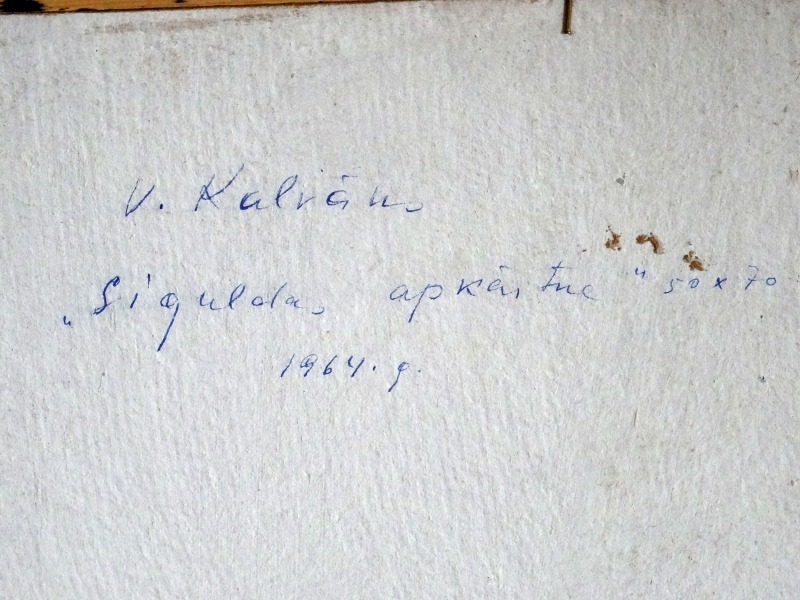 V. Kalvāns
„Siguldas apkārtne" 50x70
1964. g.